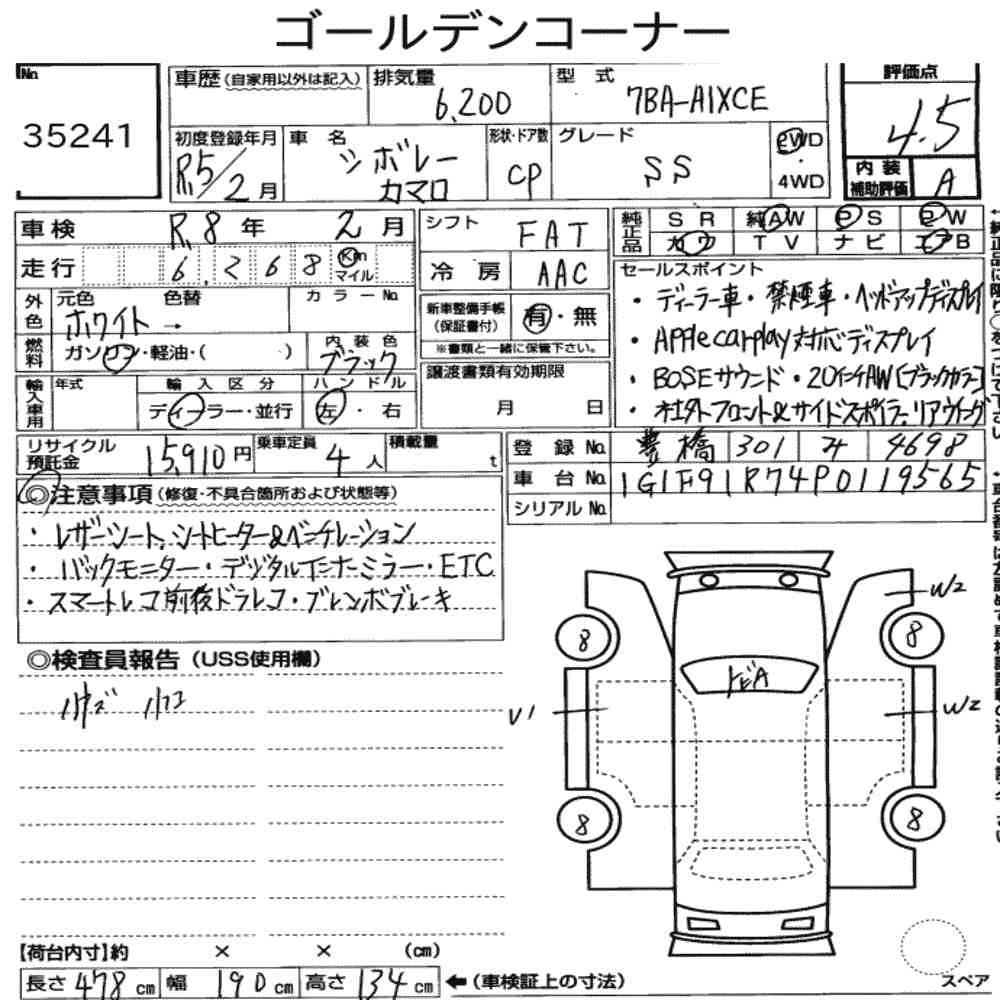 ゴールデンコーナー
No.
35241
車歴(自家用以外は記入)
排気量
6,200
型 式
7BA-A1XCE
評価点
4.5
初度登録年月
R.5/2月
車 名
シボレー
カマロ
形状・ドア数
CP
グレード
SS
2WD
・
4WD
内装
補助評価
A
車検 R.8年 2月
走行 6,268 Km
マイル
シフト FAT
冷房 AAC
純正品
SR 純AW PS PW
カワ TV ナビ エアB
外色
元色 色替
ホワイト →
カラーNo.
燃料
ガソリン・軽油・( )
内装色
ブラック
新車整備手帳
(保証書付)
有・無
※書類と一緒に保管下さい。
譲渡書類有効期限
月 日
セールスポイント
・ディーラー車・禁煙車・ヘッドアップディスプレイ
・Apple carplay対応ディスプレイ
・BOSEサウンド・20インチAW(ブラックカラー)
・社外フロント&サイドスポイラー、リアウイング
輸入車用
年式
輸入区分
ディーラー・並行
ハンドル
左・右
リサイクル
預託金
15,910円
乗車定員
4人
積載量
t
登録No. 豊橋 301 4698
車台No. 1G1F91R74P0119565
シリアルNo.
◎注意事項(修復・不具合箇所および状態等)
・レザーシート、シートヒーター&ベンチレーション
・バックモニター・デジタルインナーミラー・ETC
・スマートレコ前後ドラレコ・ブレンボブレーキ
◎検査員報告(USS使用欄)
W2
8 8
トビA
U1
W2
8 8
【荷台内寸】約 × × (cm)
長さ478cm 幅190cm 高さ134cm
←(車検証上の寸法)
スペア